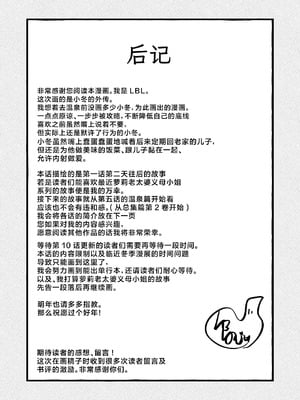 后记
非常感谢您阅读本漫画。我是 LBL。
这次画的是小冬的外传。
我想着去温泉前没画多少小冬、为此画出的漫画。
一点点原谅、一步步被攻略，不断降低自己的底线
喜欢之前虽然嘴上说着不要、
但实际上还是默许了行为的小冬。
小冬虽然嘴上蠢蛋蠢蛋地喊着后未定期回老家的儿子，
但还是为他做美味的饭菜、跟儿子黏在一起、
允许内射做爱。
本话描绘的是第一话第二天往后的故事
若是读者们能喜欢最近萝莉老太婆义母小姐
系列的故事便是我的万幸。
接下来的故事就从第五话的温泉篇开始看
应该也不会有违和感。（从总集篇第 2 卷开始）
我会将各话的简介放在下一页
您如果对我的内容感兴趣，
愿意阅读其他作品的话我将非常荣幸。
等待第 10 话更新的读者们需要再等待一段时间。
本话的内容限制以及临近冬季漫展的时间问题
导致只能画到这里了，
我会努力画到能出单行本，还请读者们耐心等待。
以及、我打算萝莉老太婆义母小姐的故事
先告一段落后再继续画。
明年也请多多指教。
那么祝愿过个好年！
期待读者的感想、留言！
这次在画稿子时收到很多次读者留言及
书评的激励。非常感谢你们。